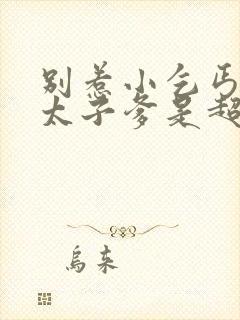 别惹小乞丐
太子爹是超
乌来